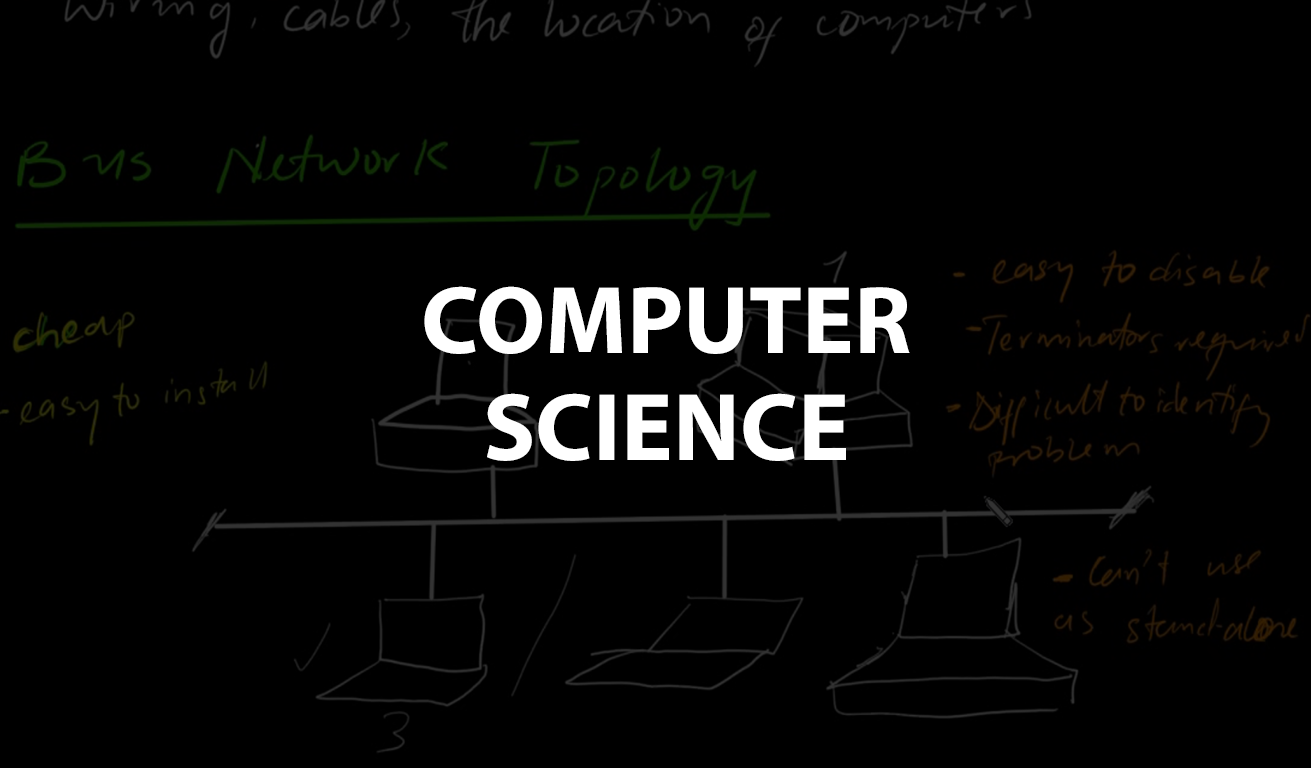 wiring, cables, the location of computers
Bus Network Topology
1
cheap
- easy to install
- easy to disable
- Terminators required
- Difficult to identify
problem
COMPUTER
SCIENCE
- Can't use
as stand-alone
3